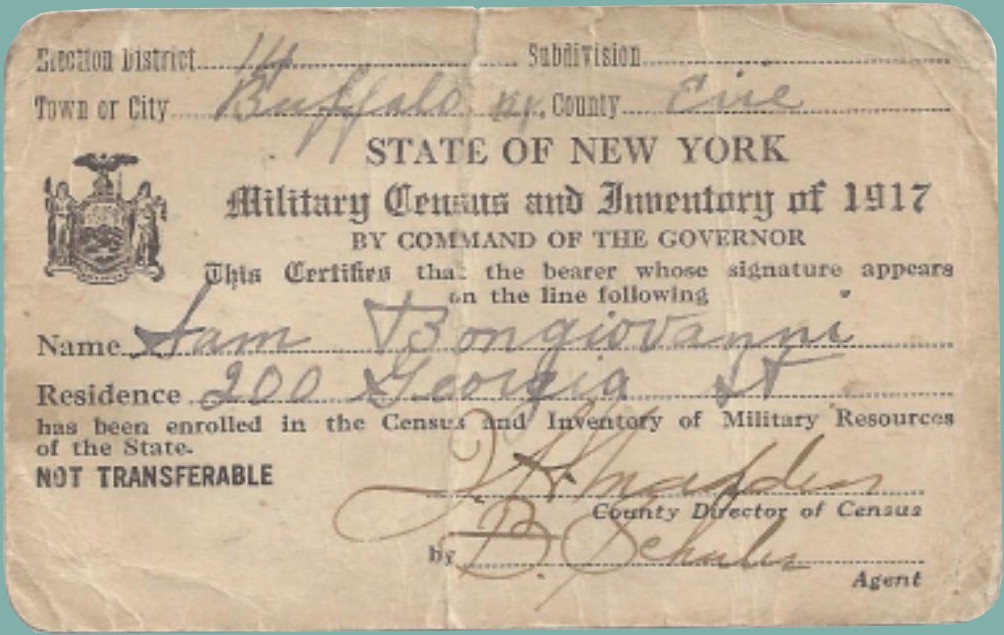 Election District 14 Subdivision
Town or City Buffalo N.Y. County Erie
STATE OF NEW YORK
Military Census and Inventory of 1917
BY COMMAND OF THE GOVERNOR
This Certifies that the bearer whose signature appears
on the line following
Name Sam Bongiovanni
Residence 200 Georgia St
has been enrolled in the Census and Inventory of Military Resources
of the State.
NOT TRANSFERABLE
County Director of Census
by B.
Agent